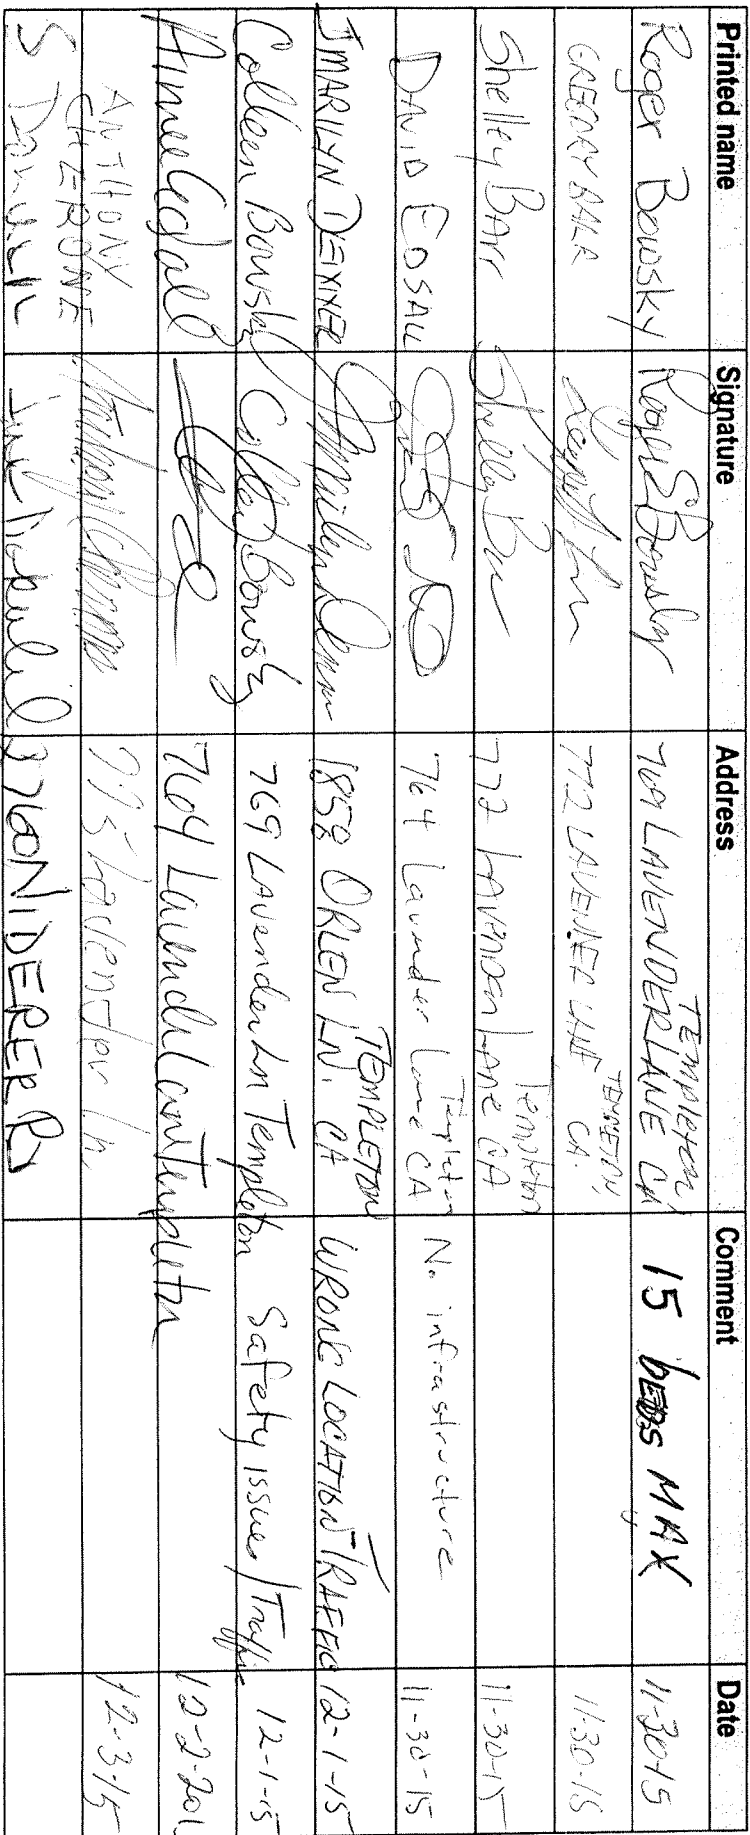 Printed name Signature Address Comment Date
Roger Bowsky Roger S Bowsky 769 LAVENDER LANE Templeton, CA 15 beds MAX 11-30-15
GREGORY 772 LAVENDER LANE TEMPLETON, CA. 11-30-15
Shelley Barr Shelley Barr 772 LAVENDER LANE Templeton CA 11-30-15
DAVID 764 Lavender Lane Templeton CA No infrastructure 11-30-15
MARILYN DEXTER 1858 ORLEN LN. TEMPLETON CA WRONG LOCATION TRAFFIC 12-1-15
Colleen Bowsky Colleen Bowsky 769 Lavender Ln Templeton Safety issues / Traffic 12-1-15
Aimee 764 Lavender Lane Templeton 12-2-201
ANTHONY CHERONE Lavender Ln. 12-3-15
S 3760 NIDERER RD